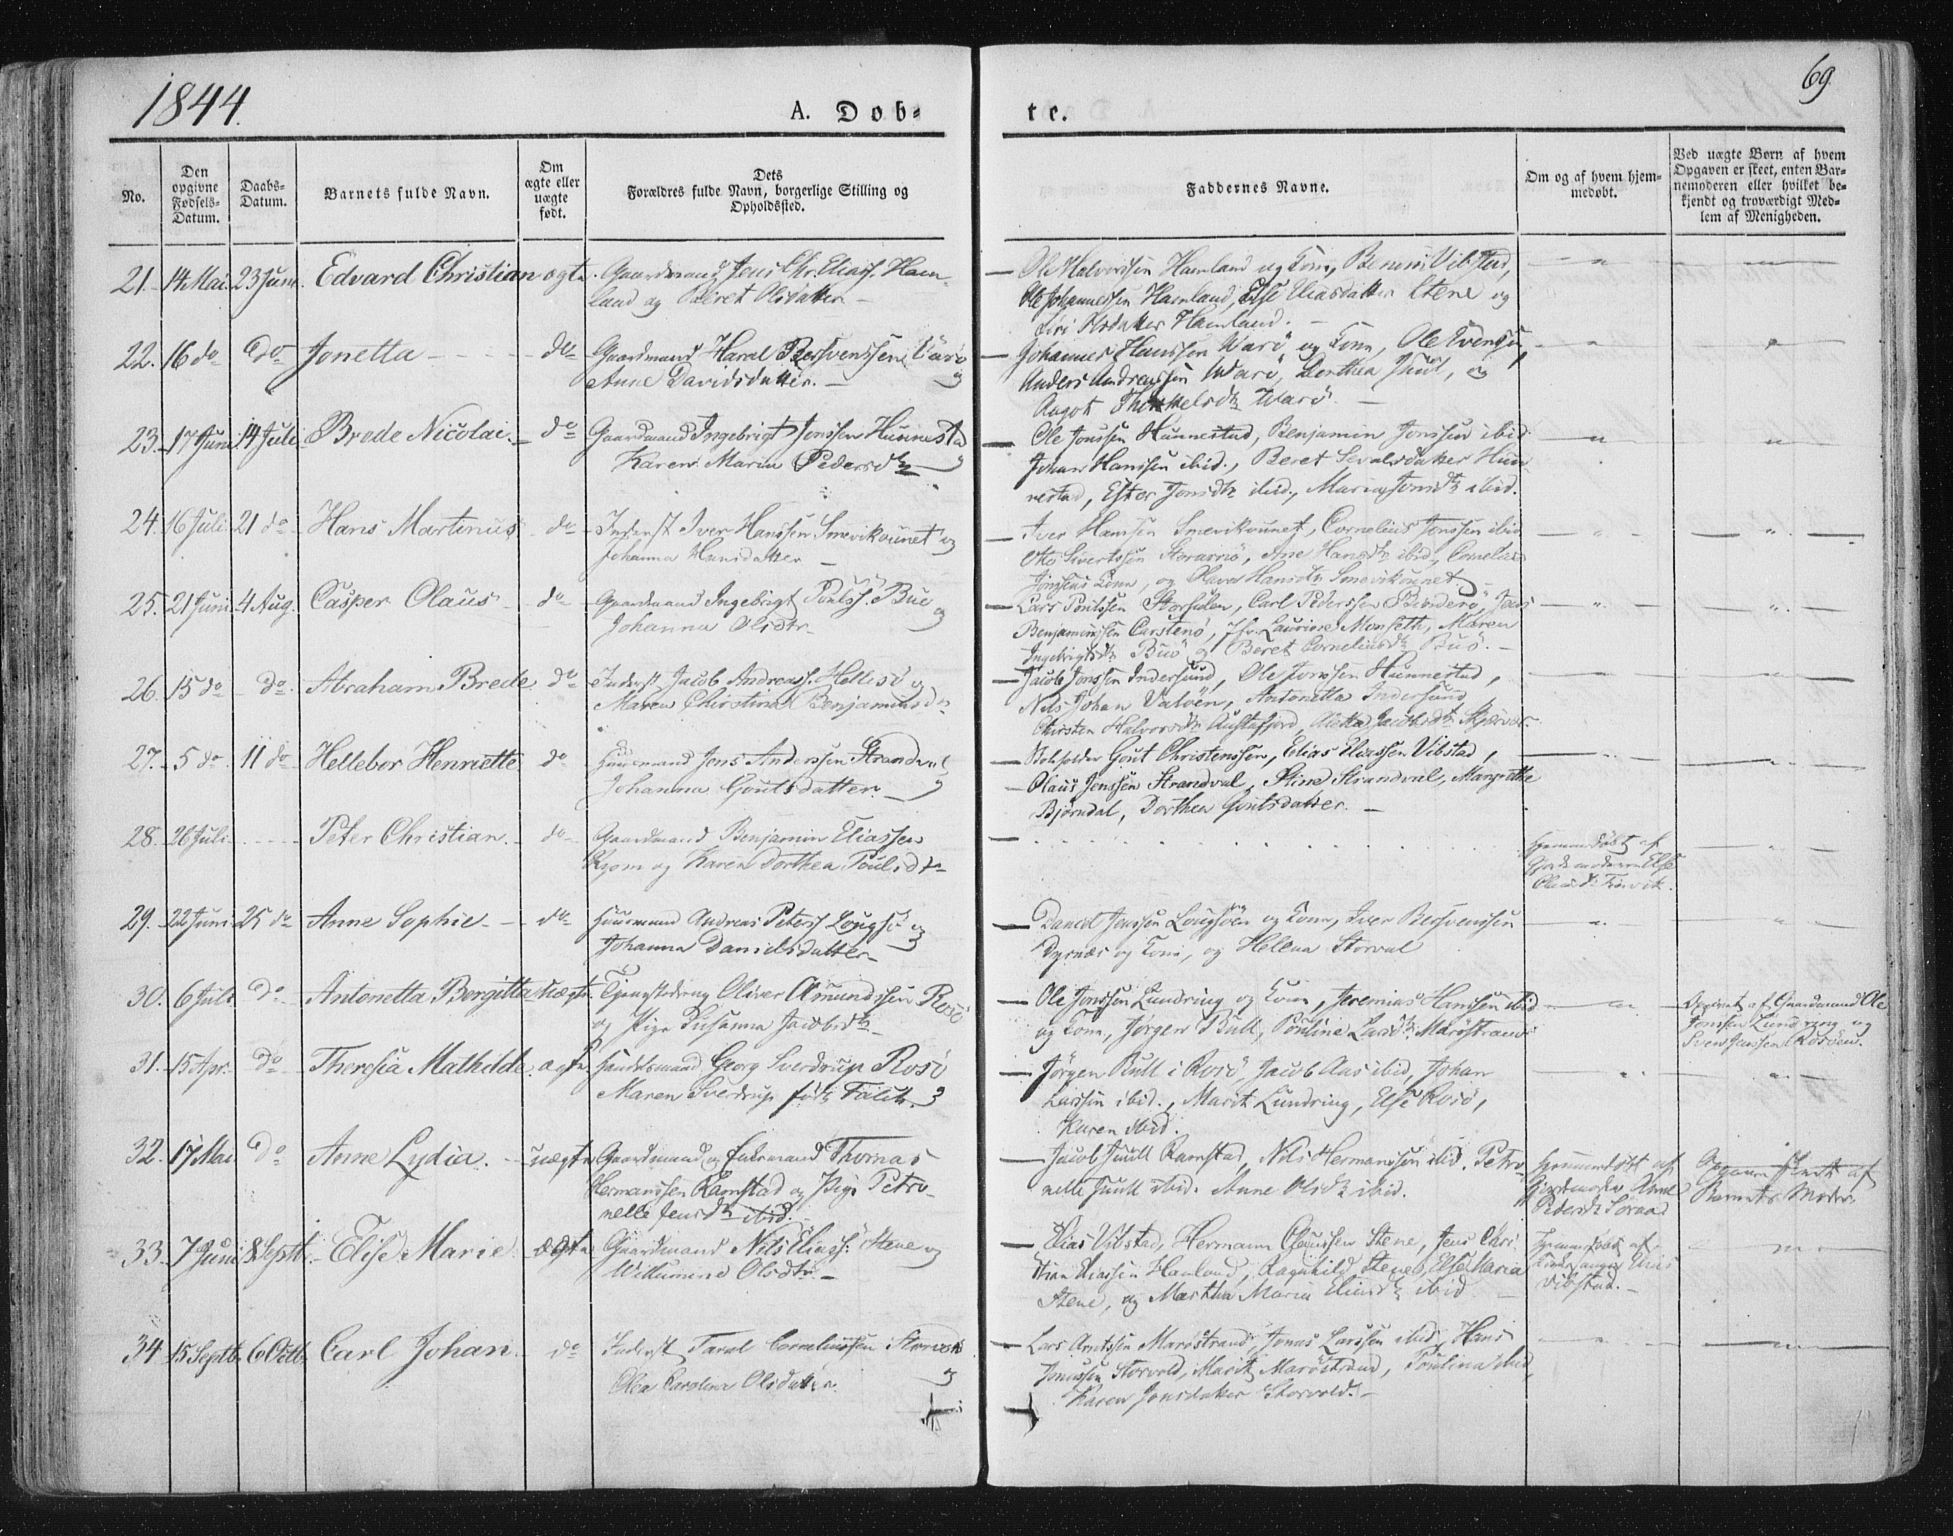 1844.
A. Døb-
te.
69.
No.
Den
opgivne
Fødsels-
Datum.
Daabs-
Datum.
Barnets fulde Navn.
Om
ægte eller
uægte
født.
Dets
Forældres fulde Navn, borgerlige Stilling og
Opholdssted.
Faddernes Navne.
Om og af hvem hjem-
medøbt.
Ved uægte Børn af hvem
Opgaven er skeet, enten Bar-
nemoderen eller hvilket be-
kjendt og troværdigt Med-
lem af Menigheden.
21. 14 Mai. 23 Juni. Edvard Christian ægte. Gaardmand Jens Chr. Eliass. Ham-
land og Beret Olsdatter
Ole Halvorssen Hamland og Kone, Vibstad,
Ole Johannessen Hamland, Else Eliasdatter Stene og
Siri Olsdatter Hamland.
22. 16 do do Jonetta do Gaardmand Haral Bersvenssen Varø
og Anne Davidsdatter.
Johannes Hanssen Warø og Kone, Ole Evensen,
Anders Andreassen Warø, Berthea Juul, og
Warø
23. 17 Juni 14 Juli Brede Nicolai. do Gaardmand Ingebrigt Jonssen Hunnestad
og Karen Maria Pedersdtr
Ole Jonssen Hunnestad, Benjamin Jonssen ibid
Johan Hanssen ibid., Beret Sevalsdatter Hun-
nestad, Ester Jonsdtr ibid., Maria Jonsdtr ibid.
24. 16 Juli 21 do Hans Martinus do Inderst Iver Hanssen Smevikounet og
Johanna Hansdatter
Iver Hansen Smevikounet, Cornelius Jonssen ibid
Otto Sivertssen, Ane Hansdtr ibid, Cornelius
Jonssens Kone, og Maren Hansdtr Smevikounet.
25. 21 Juni 4 Aug. Casper Olaus do Gaardmand Ingebrigt Poulss. Buø
og Johanna Olsdtr.
Lars Poulssen, Carl Pederssen, Jens
Benjaminssen Carstenø, Jfr. Laurine Monseth, Maren
Ingebrigtsdtr Buø og Beret Corneliusdtr Buø.
26. 15 do do. Abraham Brede do Inderst Jacob Andreass. Hellesø og
Maren Christina Benjaminsdtr
Jacob Jonssen Indersund, Ole Jonssen Hunnestad,
Nils Johan Valøen, Antonetta Indersund,
Halvorsdtr, Jacobsdtr
27. 5 do 11 do Hellebor Henriette do Huusmand Jens Anderssen Strandval
og Johanna Goutsdatter.
Gout Christenssen, Elias Eliassen Vibstad,
Olaus Jenssen Strandval, Stine Strandval, Margrethe
Bjørndal, Dorthea Goutsdatter.
28. 26 Juli. Peter Christian. do Gaardmand Benjamin Eliassen
og Karen Dorthea Poulsdtr
Hjemmedøbt af
Gjordemoderen Else
Olausdtr Finvik.
29. 22 Juni 25 do Anne Sophie do Huusmand Andreas Peterss Lougsø og
Johanna Danielsdatter
Daniel Jenssen Lougsøen og Kone, Iver Bersvenssen
Dyrnæs og Kone, og Helena Storval
30. 6 Juli do Antonetta Borgitta uægte. Tjenestedreng Oliver Amundssen Rosø
og Pige Susanna Jacobsdtr
Ole Jonssen Lundring og Kone, Jeremias Hanssen ibid
og Kone, Jørgen Bull, Pouline Larsdtr Marøstrand
Opgivet af Gaardmand Ole
Jonssen Lundring og
Sven Jenssen Rosøen.
31. 15 Apr. do Theresia Mathilde. ægte Handelsmand Georg Sverdrup Rosø
Maren Sverdrup født Falck.
Jørgen Bull i Rosø, Jacob Aas ibid, Johan
Larssen ibid., Marit Lundring, Else Rosø,
Karen ibid.
32. 17 Mai. do Anne Lydia. uægte Gaardmand og Enkemand Thomas
Hermanssen Ramstad og Pige Petro-
nelle Jensdtr ibid.
Jacob Juull Ramstad, Nils Hermanssen ibid. Petro-
nelle Juull ibid. Anne Olsdtr ibid.
Hjemmedøbt af
Gjordemoder
Pedersdtr
Opgaven skeet af
Barnets Moder.
33. 7 Juni 8 Septb. Elise Marie. ægte Gaardmand Nils Eliass: Stene og
Willumine Olsdtr.
Elias Vibstad, Hermann Olaussen Stene, Jens Chri-
stian Eliassen Hamland, Ragnhild Stene, Else Maria
Stene, og Martha Maria Eliasdtr ibid
Hjemmedøbt af
Kirkesanger Elias
Vibstad.
34 15 Septb. 6 Octb. Carl Johan. do Inderst Taral Corneliussen Storvold
og Olea Carolina Olsdatter.
Lars Arntssen Marøstrand, Jonas Larssen ibid, Hans
Jonassen Storvold, Marit Marøstrand, Poulina ibid,
Karen Jonsdatter Storvold.